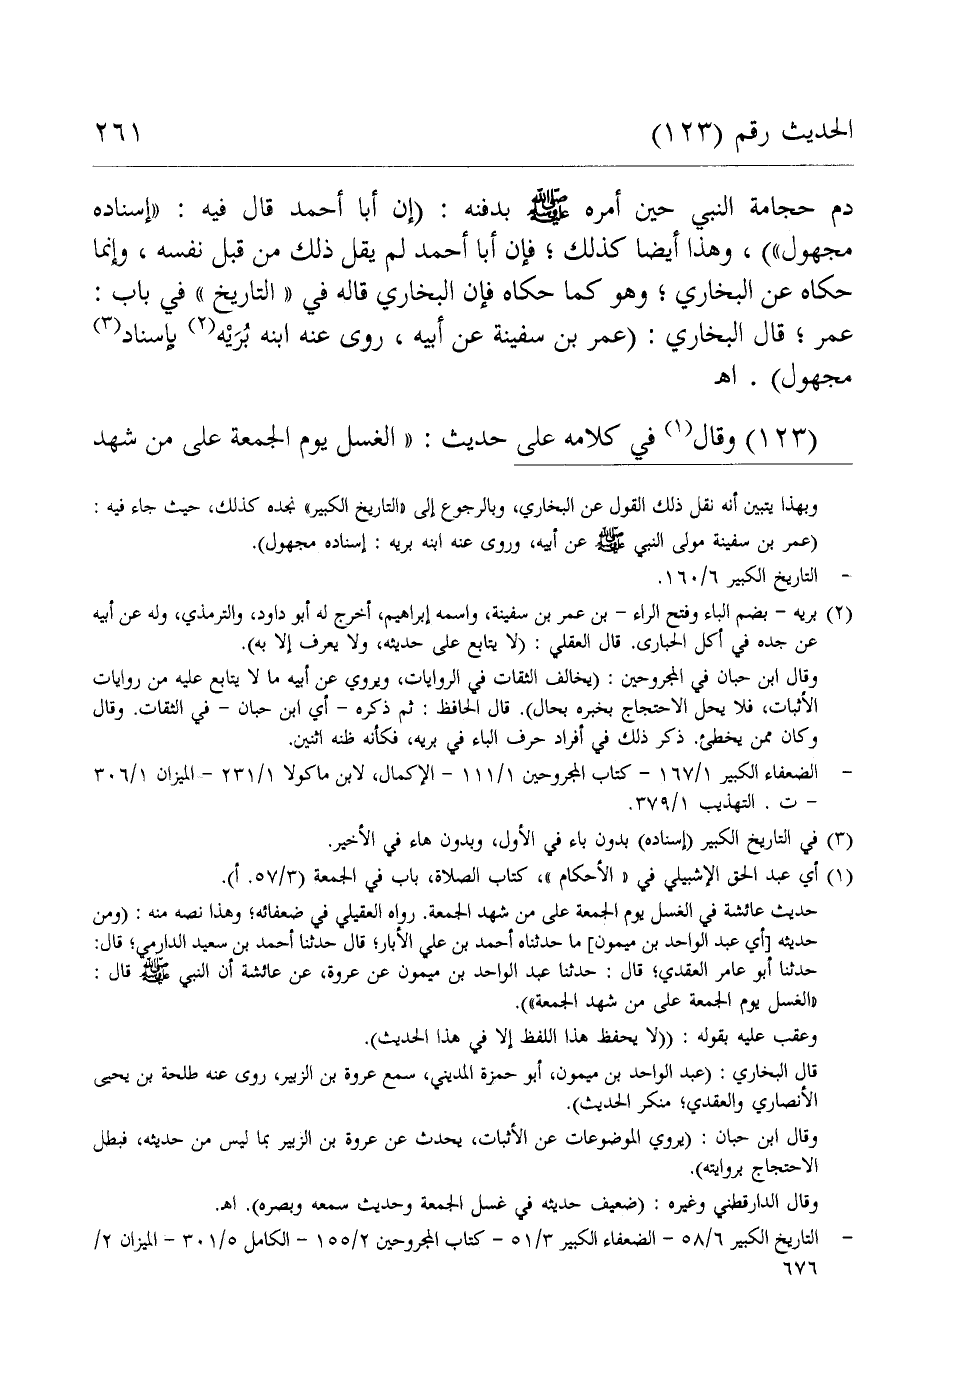 الحديث رقم (١٢٣) ٢٦١
دم حجامة النبي حين أمره ﷺ بدفنه : (إن أبا أحمد قال فيه : «إسناده
مجهول») ، وهذا أيضا كذلك ؛ فإن أبا أحمد لم يقل ذلك من قبل نفسه ، وإنما
حكاه عن البخاري ؛ وهو كما حكاه فإن البخاري قاله في « التاريخ » في باب :
عمر ؛ قال البخاري : (عمر بن سفينة عن أبيه ، روى عنه ابنه بُرَيْه(٢) بإسناد(٣)
مجهول) . اهـ
(١٢٣) وقال(١) في كلامه على حديث : « الغسل يوم الجمعة على من شهد
وبهذا يتبين أنه نقل ذلك القول عن البخاري، وبالرجوع إلى «التاريخ الكبير» نجده كذلك، حيث جاء فيه :
(عمر بن سفينة مولى النبي ﷺ عن أبيه، وروى عنه ابنه بريه : إسناده مجهول).
- التاريخ الكبير ١٦٠/٦.
(٢) بريه - بضم الباء وفتح الراء - بن عمر بن سفينة، واسمه إبراهيم، أخرج له أبو داود، والترمذي، وله عن أبيه
عن جده في أكل الحبارى. قال العقلي : (لا يتابع على حديثه، ولا يعرف إلا به).
وقال ابن حبان في المجروحين : (يخالف الثقات في الروايات، ويروي عن أبيه ما لا يتابع عليه من روايات
الأثبات، فلا يحل الاحتجاج بخبره بحال). قال الحافظ : ثم ذكره - أي ابن حبان - في الثقات. وقال
وكان ممن يخطئ. ذكر ذلك في أفراد حرف الباء في بريه، فكأنه ظنه اثنين.
- الضعفاء الكبير ١٦٧/١ - كتاب المجروحين ١١١/١ - الإكمال، لابن ماكولا ٢٣١/١ - الميزان ٣٠٦/١
- ت . التهذيب ٣٧٩/١.
(٣) في التاريخ الكبير (إسناده) بدون باء في الأول، وبدون هاء في الأخير.
(١) أي عبد الحق الإشبيلي في « الأحكام »، كتاب الصلاة، باب في الجمعة (٥٧/٣. أ).
حديث عائشة في الغسل يوم الجمعة على من شهد الجمعة. رواه العقيلي في ضعفائه؛ وهذا نصه منه : (ومن
حديثه [أي عبد الواحد بن ميمون] ما حدثناه أحمد بن علي الأبار؛ قال حدثنا أحمد بن سعيد الدارمي؛ قال:
حدثنا أبو عامر العقدي؛ قال : حدثنا عبد الواحد بن ميمون عن عروة، عن عائشة أن النبي ﷺ قال :
«الغسل يوم الجمعة على من شهد الجمعة»).
وعقب عليه بقوله : ((لا يحفظ هذا اللفظ إلا في هذا الحديث).
قال البخاري : (عبد الواحد بن ميمون، أبو حمزة المديني، سمع عروة بن الزبير، روى عنه طلحة بن يحيى
الأنصاري والعقدي؛ منكر الحديث).
وقال ابن حبان : (يروي الموضوعات عن الأثبات، يحدث عن عروة بن الزبير بما ليس من حديثه، فبطل
الاحتجاج بروايته).
وقال الدارقطني وغيره : (ضعيف حديثه في غسل الجمعة وحديث سمعه وبصره). اهـ.
- التاريخ الكبير ٥٨/٦ - الضعفاء الكبير ٥١/٣ - كتاب المجروحين ١٥٥/٢ - الكامل ٣٠١/٥ - الميزان ٢/
٦٧٦